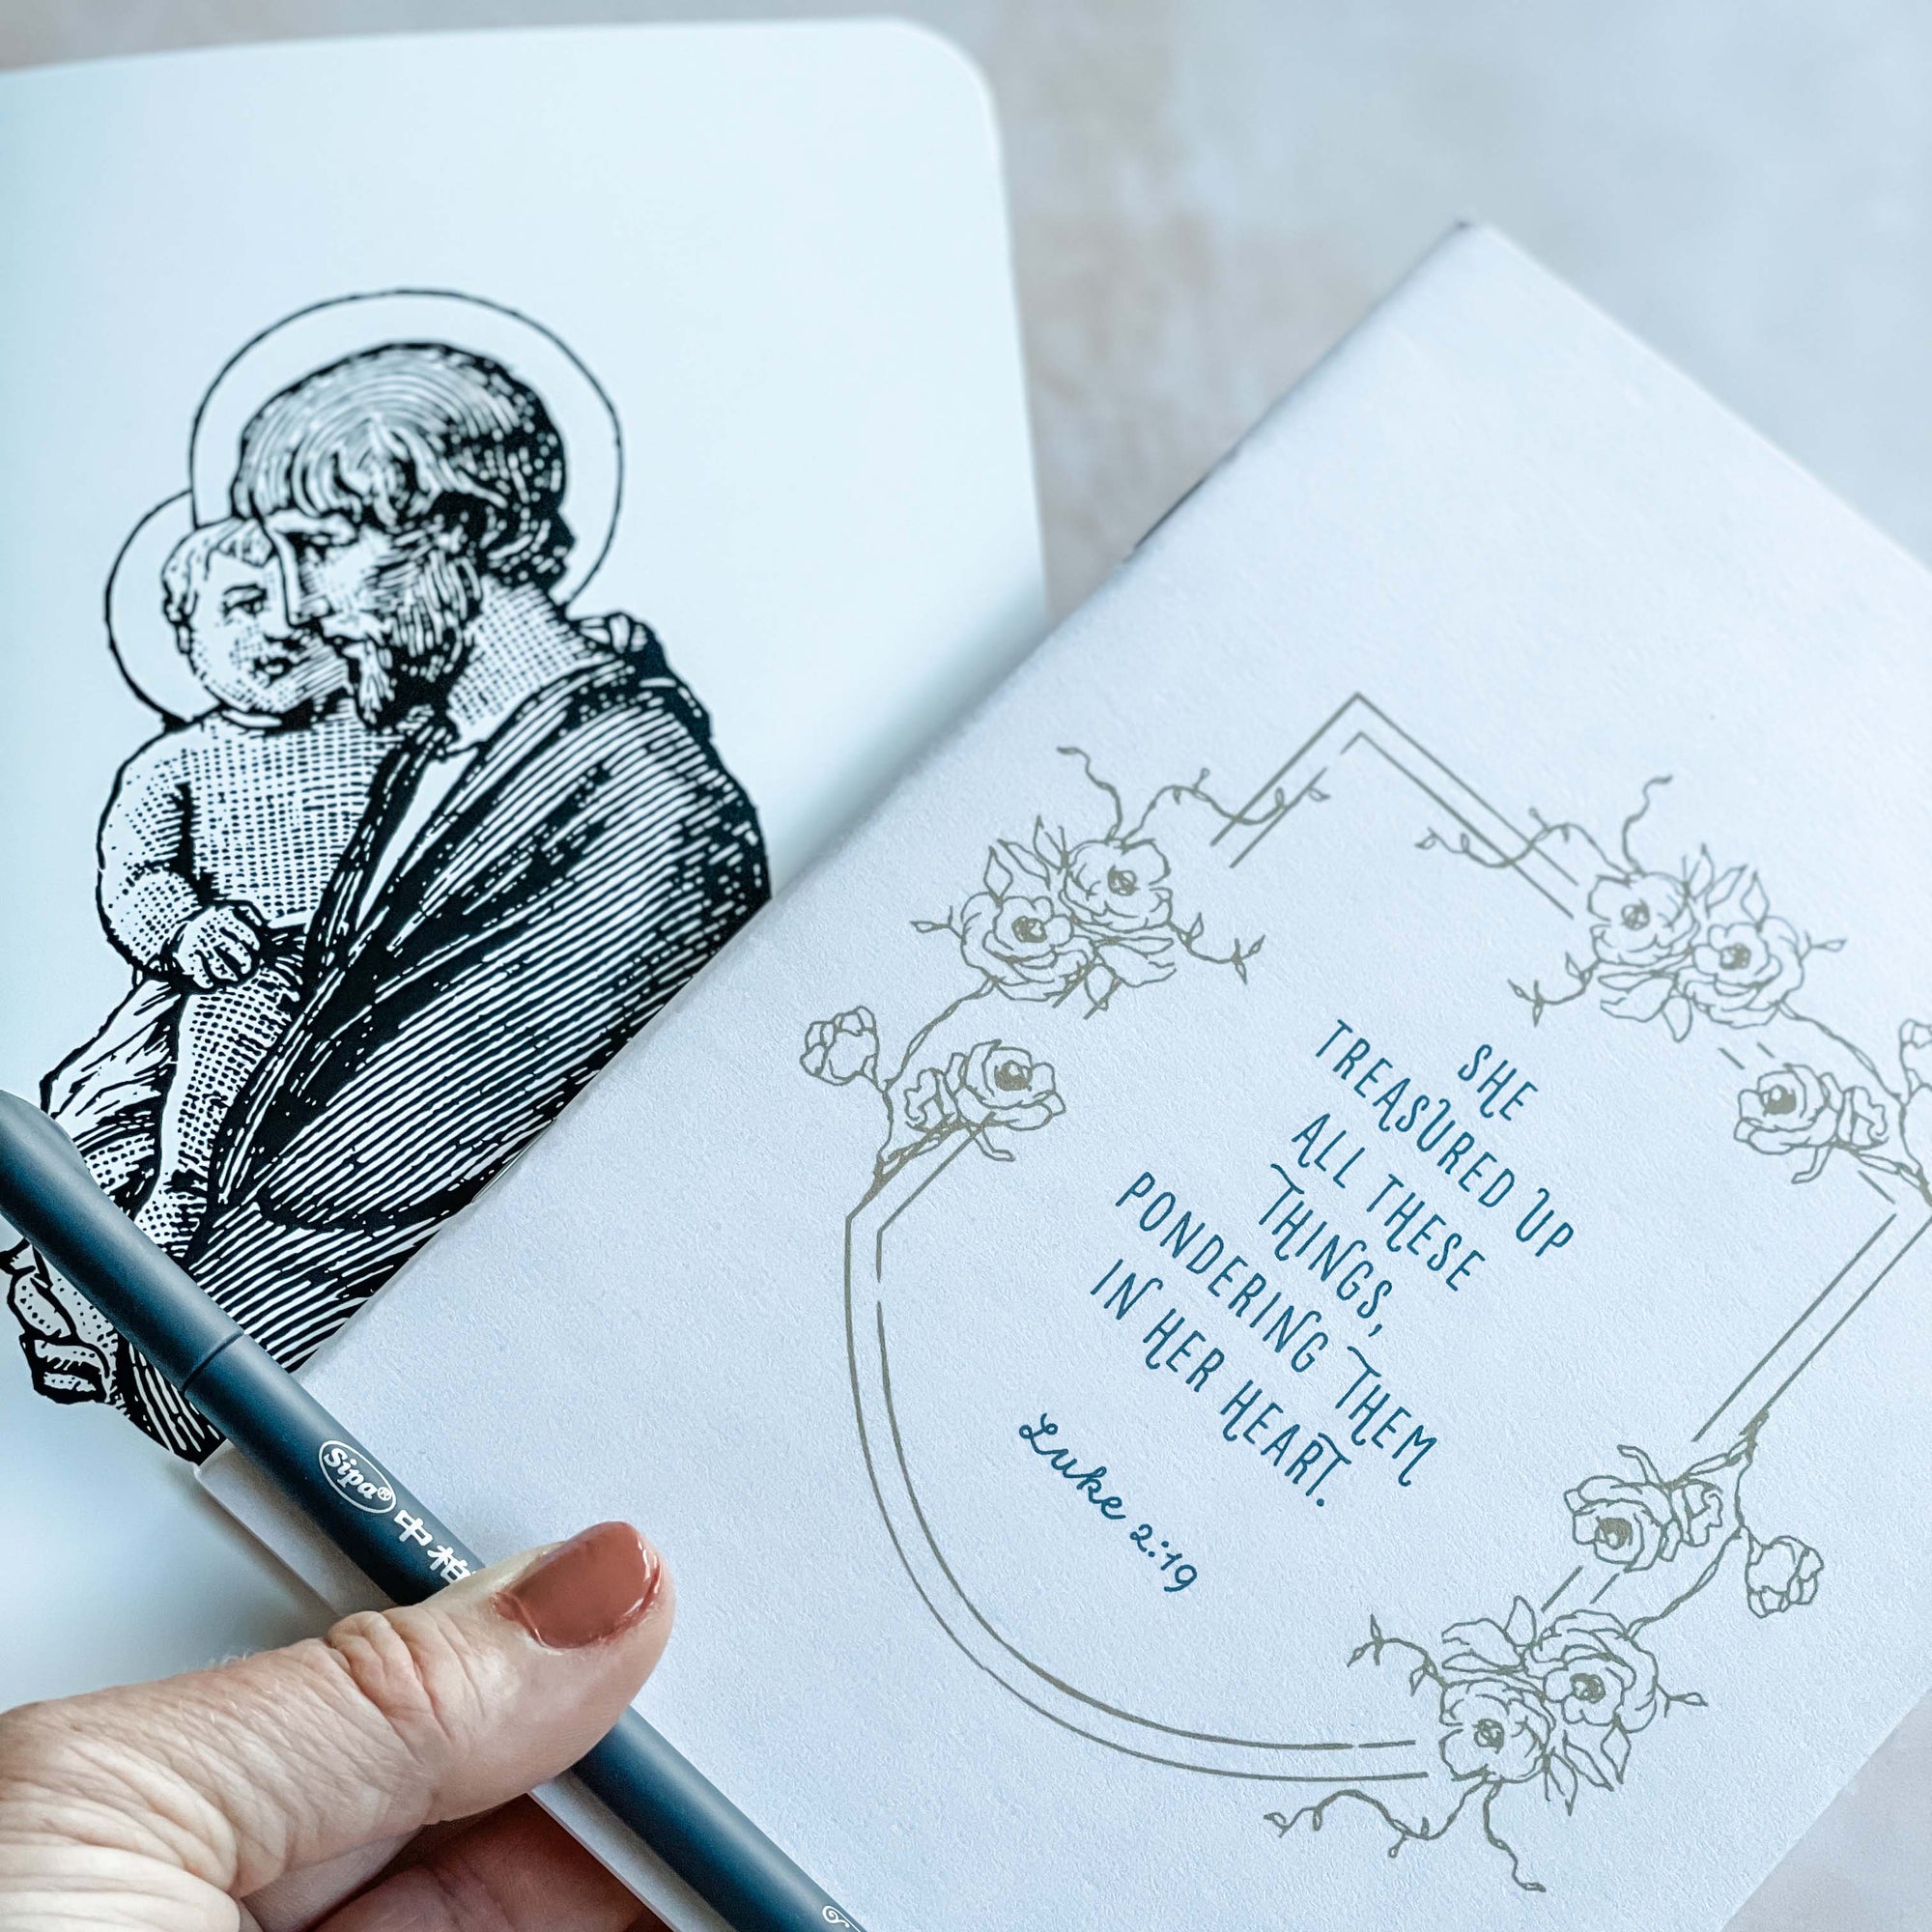 SHE
TREASURED UP
ALL THESE
THINGS,
PONDERING THEM
IN HER HEART.
Luke 2:19
Sipa® 中柏